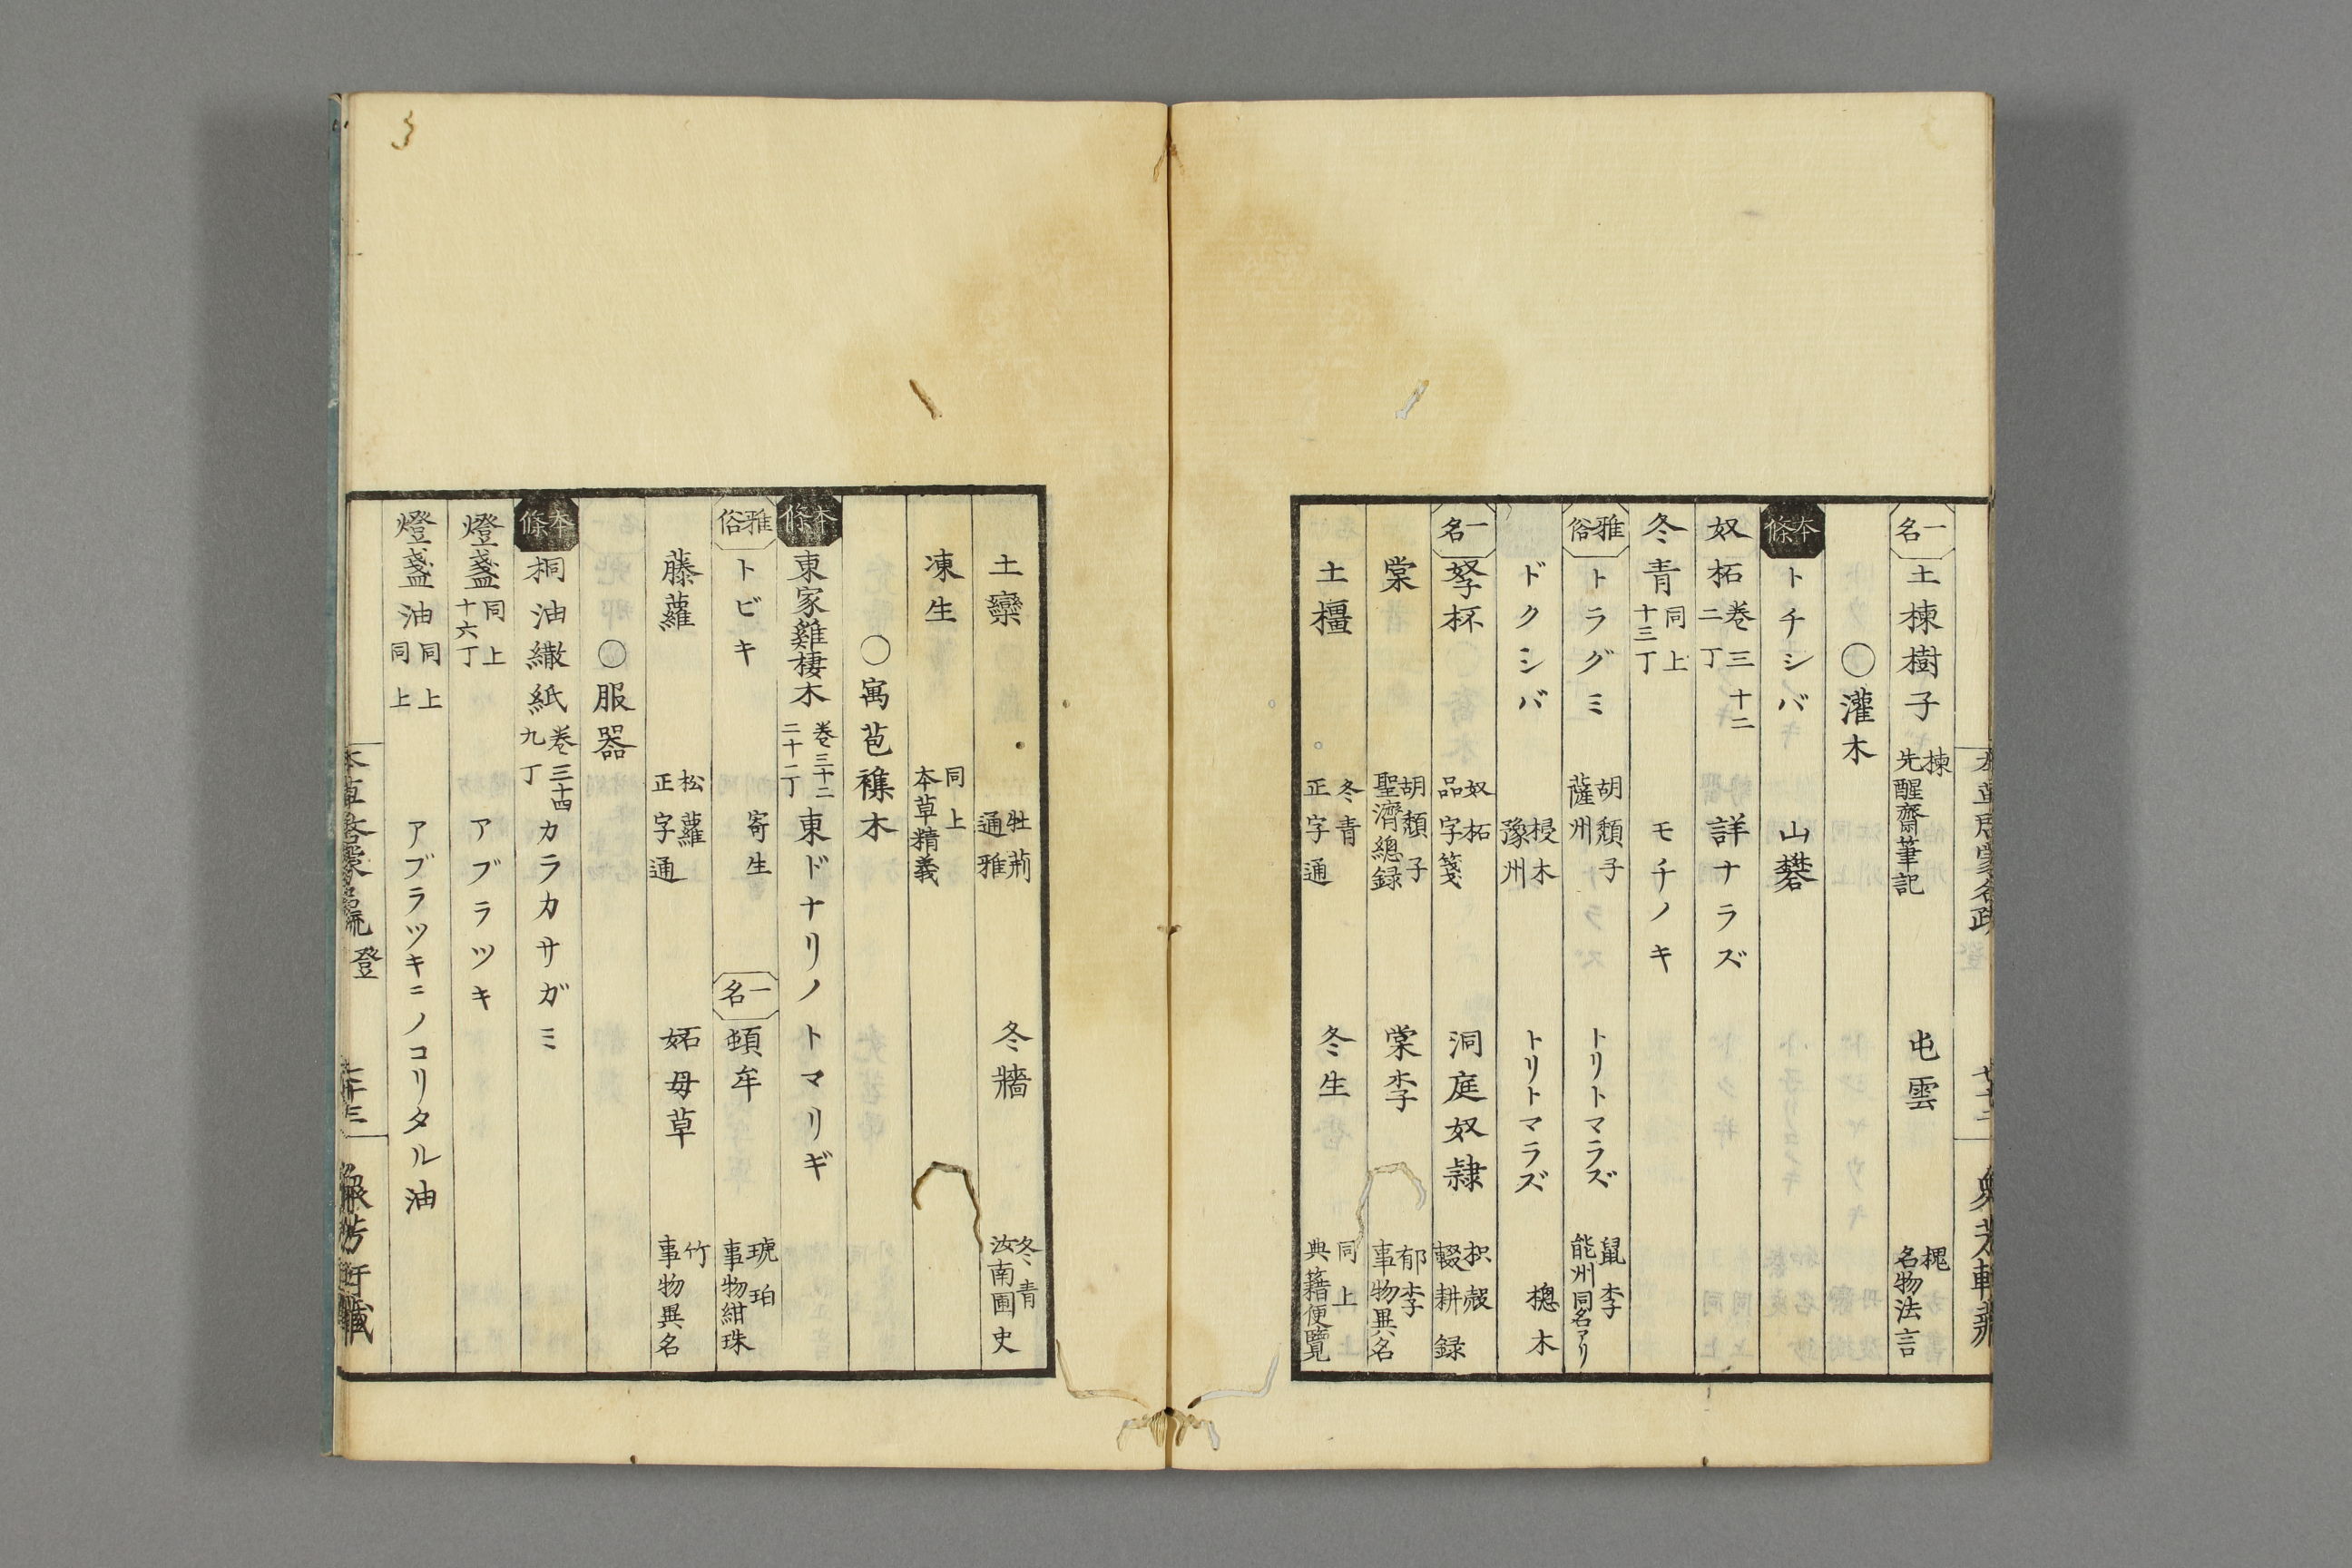 一名 土楝樹子 楝 先醒齋筆記 屯雲 槐 名物法言
○灌木
本條 トチシバ 山礬
奴柘 巻三十二 二丁 詳ナラズ
冬青 同上 十三丁 モチノキ
雅俗 トラグミ 胡頽子 薩州 トリトマラズ 鼠李 能州同名アリ
ドクシバ 梫木 豫州 トリトマラズ 楤木
一名 拏杯 奴柘 品字箋 洞庭奴隷 枳殻 輟耕録
棠 胡頽子 聖濟總録 棠李 郁李 事物異名
土橿 冬青 正字通 冬生 同上 典籍便覽
土欒 牡荊 通雅 冬牆 冬青 汝南圃史
凍生 同上 本草精義
○寓苞襍木
本條 東家雞棲木 巻三十二 二十二丁 東ドナリノトマリギ
雅俗 トビキ 寄生 一名 頓牟 琥珀 事物紺珠
藤蘿 松蘿 正字通 妬母草 竹 事物異名
○服器
本條 桐油繖紙 巻三十四 九丁 カラカサガミ
燈盞 同上 十六丁 アブラツキ
燈盞油 同上 同上 アブラツキニノコリタル油
登